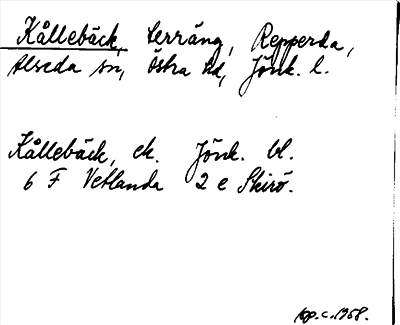 Kållebäck, terräng, Repperda,
Alseda sn, Östra hd, Jönk. l.
Kållebäck, ek. Jönk. bl.
6 F Vetlanda 2 e Skirö.
top.c.1958.